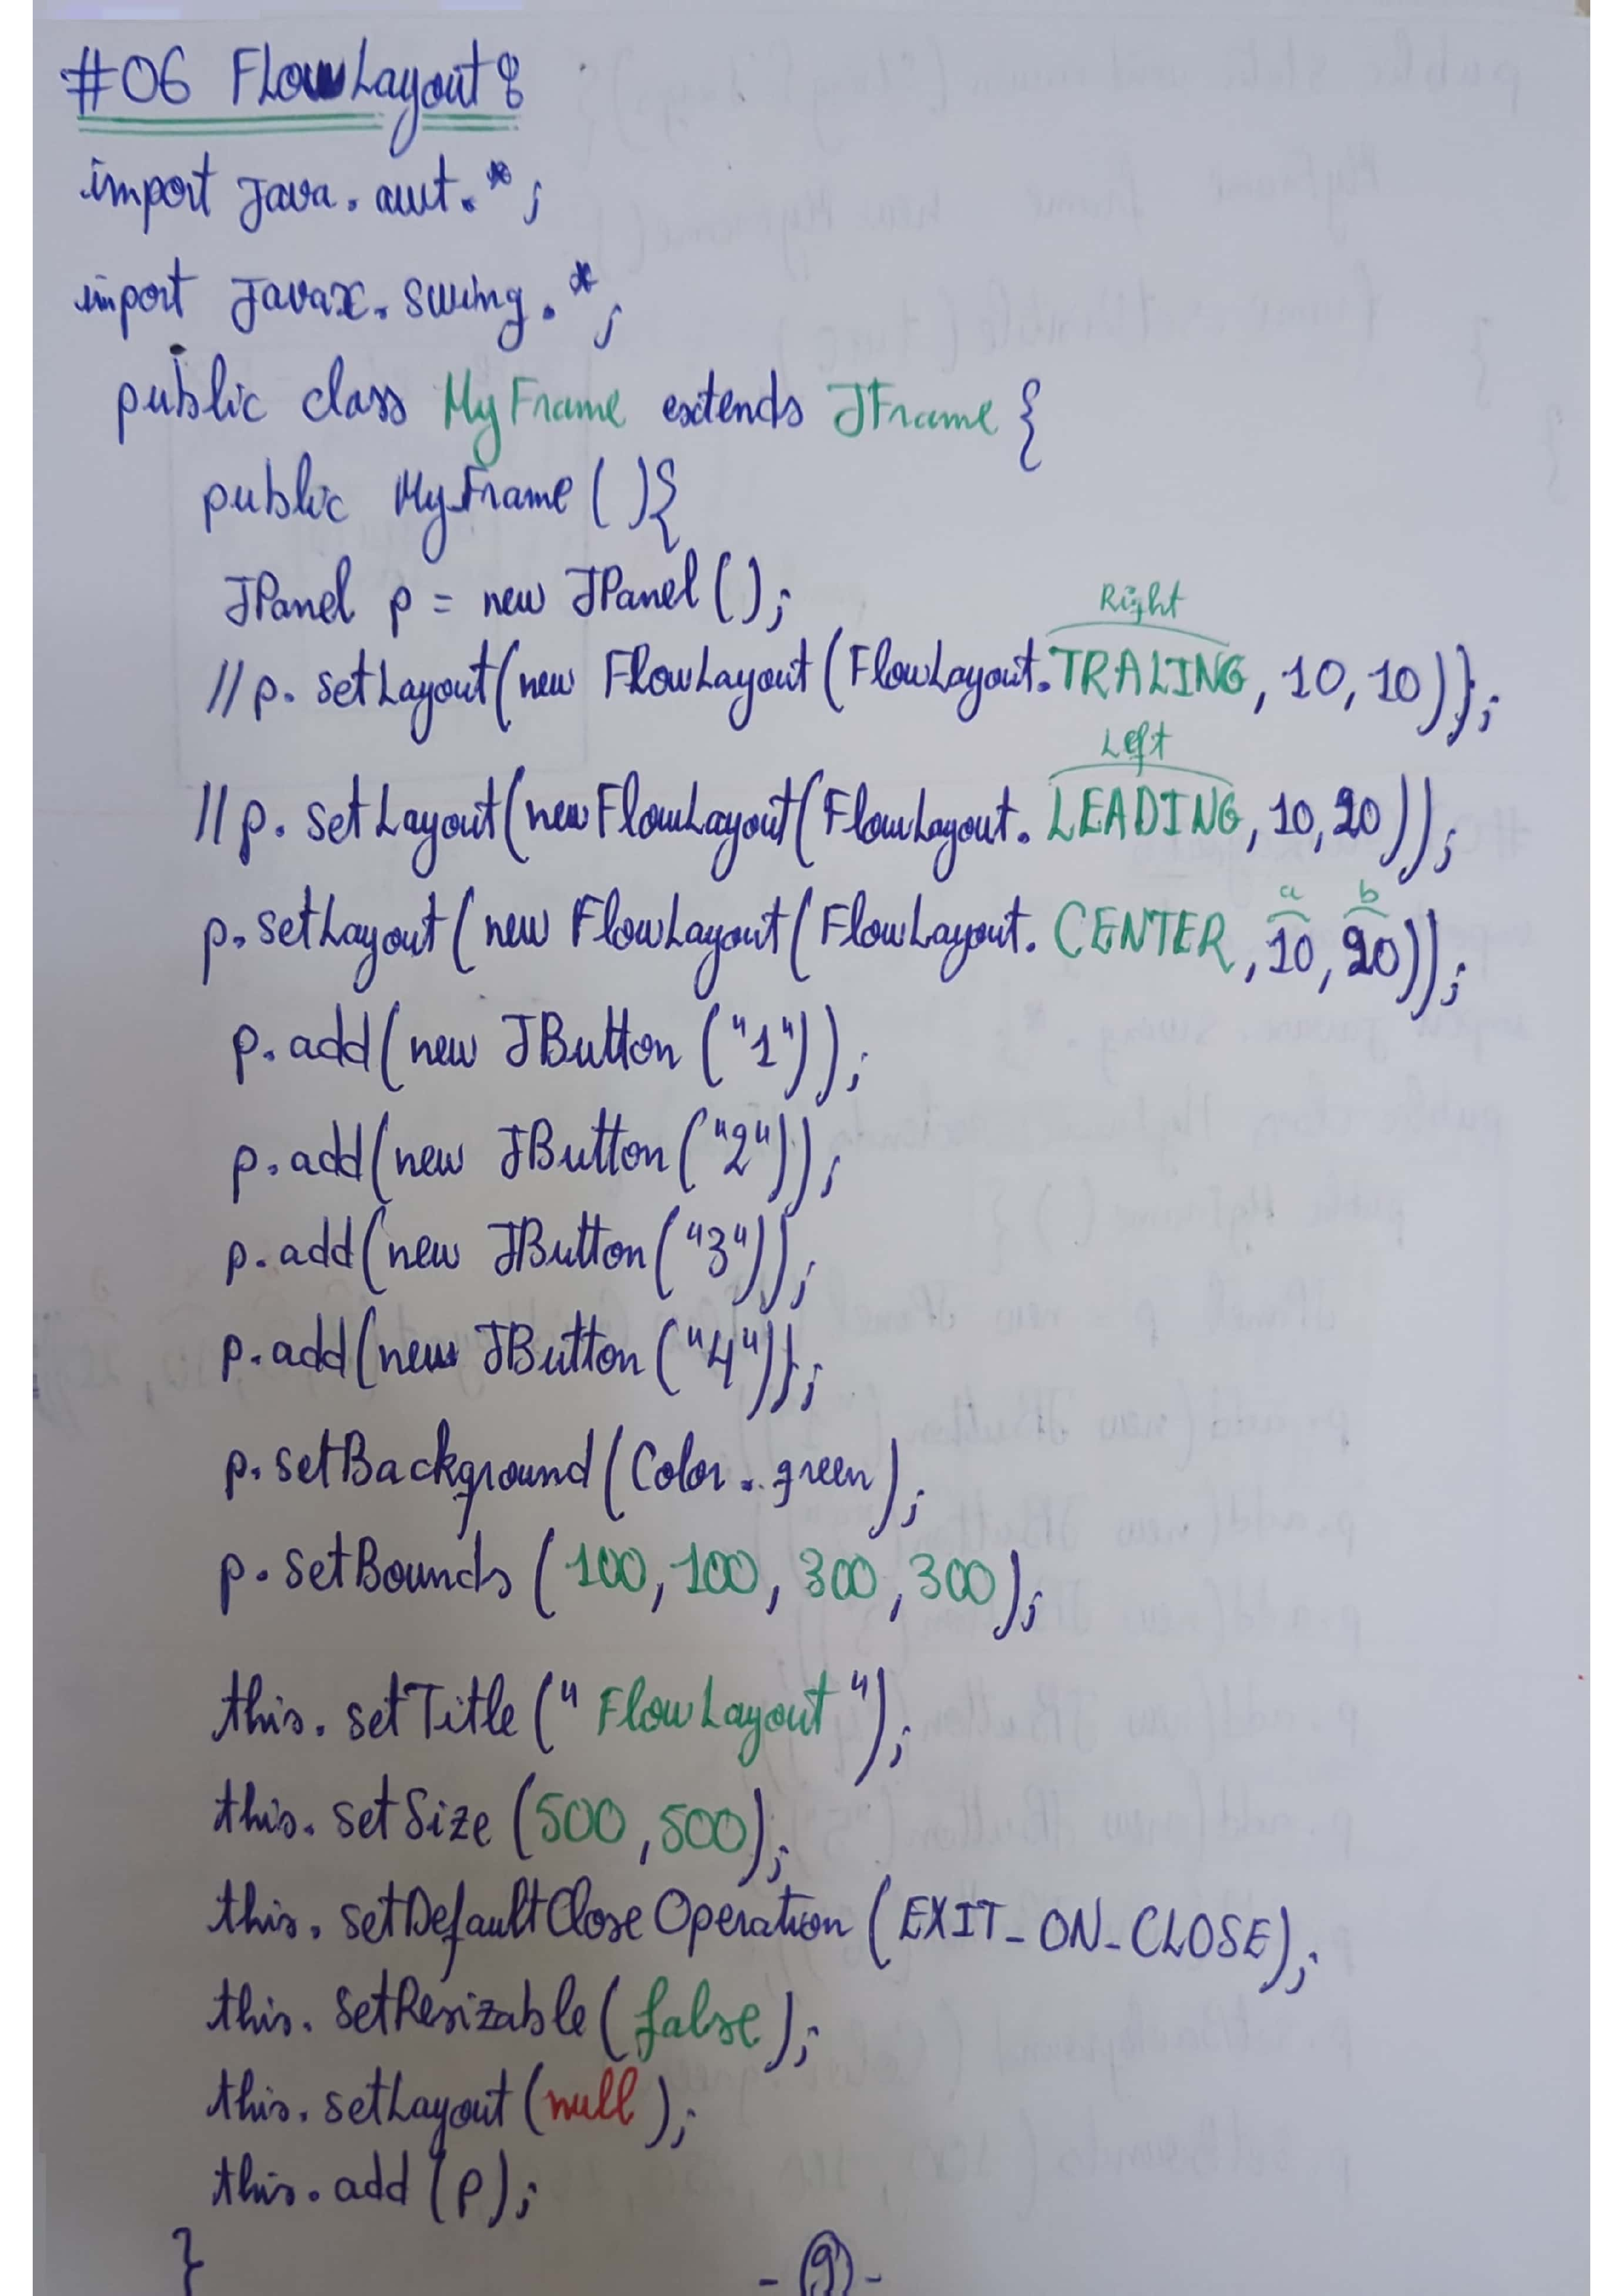 #06 FLowLayout :
import java.awt.*;
import javax.swing.*;
public class MyFrame extends JFrame {
public MyFrame(){
JPanel p = new JPanel();
Right
//p.setLayout(new FlowLayout(FlowLayout.TRALING, 10, 10));
Left
//p.setLayout(new FlowLayout(FlowLayout.LEADING, 10, 20));
a b
p.setLayout(new FlowLayout(FlowLayout.CENTER, 10, 20));
p.add(new JButton("1"));
p.add(new JButton("2"));
p.add(new JButton("3"));
p.add(new JButton("4"));
p.setBackground(Color.green);
p.setBounds(100, 100, 300, 300);
this.setTitle("FlowLayout");
this.setSize(500, 500);
this.setDefaultCloseOperation(EXIT_ON_CLOSE);
this.setResizable(false);
this.setLayout(null);
this.add(p);
}
- 9 -